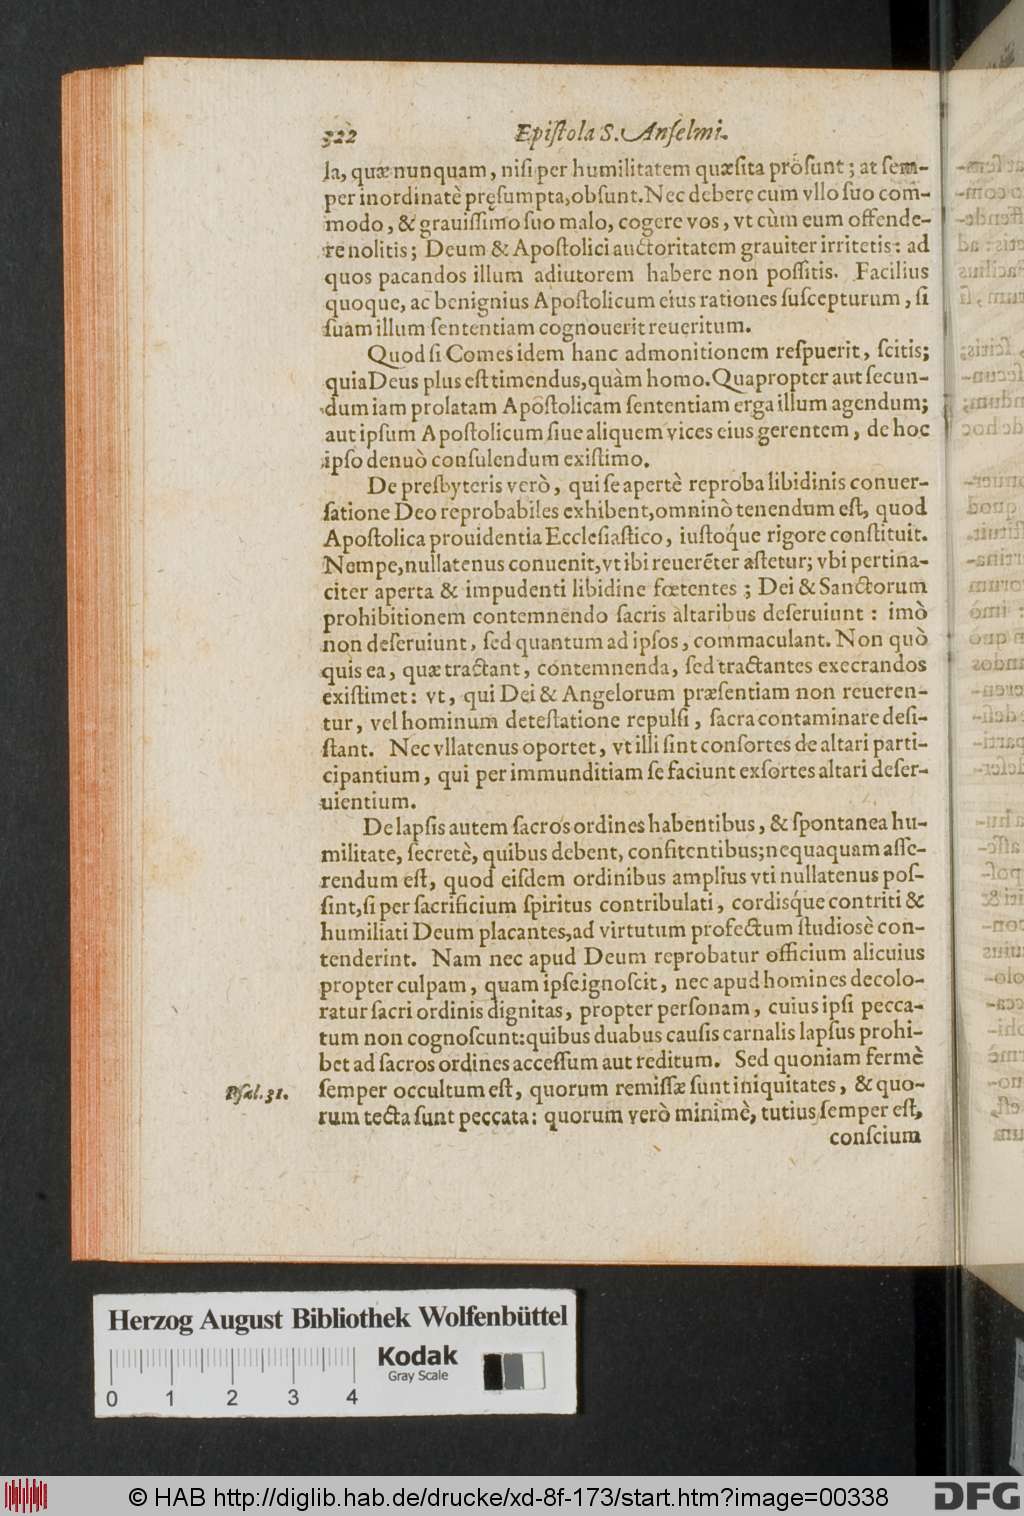 322 Epiſtola S. Anſelmi.
la, quæ nunquam, niſi per humilitatem quæſita proſunt; at ſem-
per inordinatè pręſumpta, obſunt. Nec debere cum vllo ſuo com-
modo, & grauiſſimo ſuo malo, cogere vos, vt cùm eum offende-
re nolitis; Deum & Apoſtolici auctoritatem grauiter irritetis: ad
quos pacandos illum adiutorem habere non poſſitis. Facilius
quoque, ac benignius Apoſtolicum eius rationes ſuſcepturum, ſi
ſuam illum ſententiam cognouerit reueritum.
Quod ſi Comes idem hanc admonitionem reſpuerit, ſcitis;
quia Deus plus eſt timendus, quàm homo. Quapropter aut ſecun-
dum iam prolatam Apoſtolicam ſententiam erga illum agendum;
aut ipſum Apoſtolicum ſiue aliquem vices eius gerentem, de hoc
ipſo denuò conſulendum exiſtimo.
De preſbyteris verò, qui ſe apertè reproba libidinis conuer-
ſatione Deo reprobabiles exhibent, omninò tenendum eſt, quod
Apoſtolica prouidentia Eccleſiaſtico, iuſtoq́ue rigore conſtituit.
Nempe, nullatenus conuenit, vt ibi reuerẽter aſtetur; vbi pertina-
citer aperta & impudenti libidine fœtentes; Dei & Sanctorum
prohibitionem contemnendo ſacris altaribus deſeruiunt: imò
non deſeruiunt, ſed quantum ad ipſos, commaculant. Non quò
quis ea, quæ tractant, contemnenda, ſed tractantes execrandos
exiſtimet: vt, qui Dei & Angelorum præſentiam non reueren-
tur, vel hominum deteſtatione repulſi, ſacra contaminare deſi-
ſtant. Nec vllatenus oportet, vt illi ſint conſortes de altari parti-
cipantium, qui per immunditiam ſe faciunt exſortes altari deſer-
uientium.
De lapſis autem ſacros ordines habentibus, & ſpontanea hu-
militate, ſecretè, quibus debent, confitentibus; nequaquam aſſe-
rendum eſt, quod eiſdem ordinibus amplius vti nullatenus poſ-
ſint, ſi per ſacrificium ſpiritus contribulati, cordiſq́ue contriti &
humiliati Deum placantes, ad virtutum profectum ſtudiosè con-
tenderint. Nam nec apud Deum reprobatur officium alicuius
propter culpam, quam ipſe ignoſcit, nec apud homines decolo-
ratur ſacri ordinis dignitas, propter perſonam, cuius ipſi pecca-
tum non cognoſcunt: quibus duabus cauſis carnalis lapſus prohi-
bet ad ſacros ordines acceſſum aut reditum. Sed quoniam fermè
Pſal. 31. ſemper occultum eſt, quorum remiſſæ ſunt iniquitates, & quo-
rum tecta ſunt peccata: quorum verò minimè, tutius ſemper eſt,
conſcium
Herzog August Bibliothek Wolfenbüttel
Kodak
Gray Scale
0 1 2 3 4
© HAB http://diglib.hab.de/drucke/xd-8f-173/start.htm?image=00338
DFG